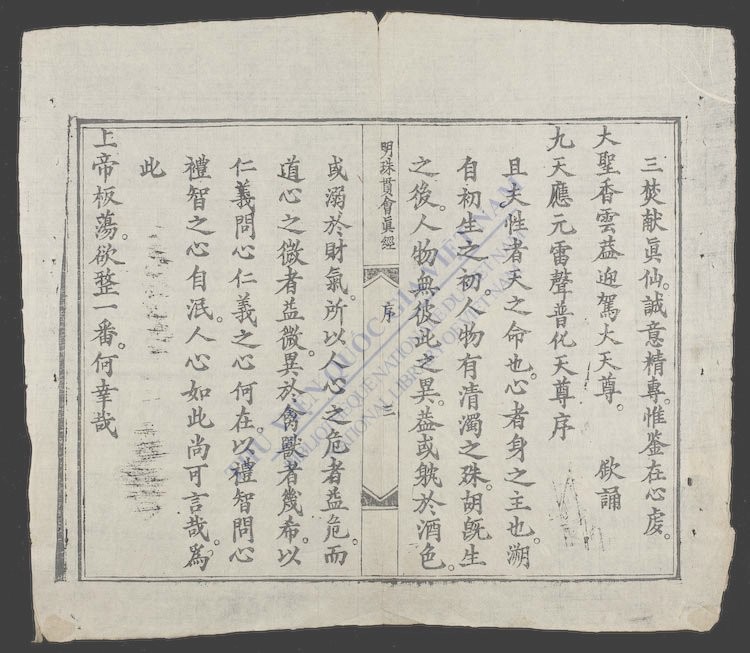 三焚献眞仙。誠意精專惟鉴在心虔。
大聖香雲葢迎駕大天尊。 欽誦
九天應元雷聲普化天尊序
且夫性者天之命也。心者身之主也。溯
自初生之初。人物有清濁之殊。胡旣生
之後。人物無彼此之異。葢或躭於酒色。
明珠貫會眞經
序
三
或溺於財氣。所以人心之危者益危。而
道心之微者益微。異於禽獸者幾希。以
仁義問心仁義之心何在。以禮智問心
禮智之心自泯。人心如此尚可言哉。爲
此
上帝板蕩。欲整一番。何幸哉
THƯ VIỆN QUỐC GIA VIỆT NAM
BIBLIOTHEQUE NATIONALE DU VIETNAM
NATIONAL LIBRARY OF VIETNAM